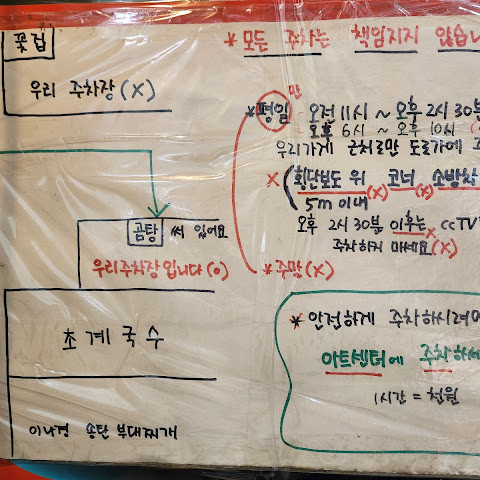 꽃집
우리 주차장(X)
곰탕 써 있어요
우리주차장입니다(o)
초계국수
이나경 송탄 부대찌개
* 모든 주차는 책임지지 않습니
만
*평일 오전 11시 ~ 오후 2시 30분
오후 6시 ~ 오후 10시
우리가게 근처로만 도로가에
X (횡단보도 위(X) 코너(X) 소방차
5m 이내
오후 2시 30분 이후는 CCTV
주차하지 마세요(X)
*주말(X)
* 안전하게 주차하시려
아트센터에 주차하세
1시간 = 천원